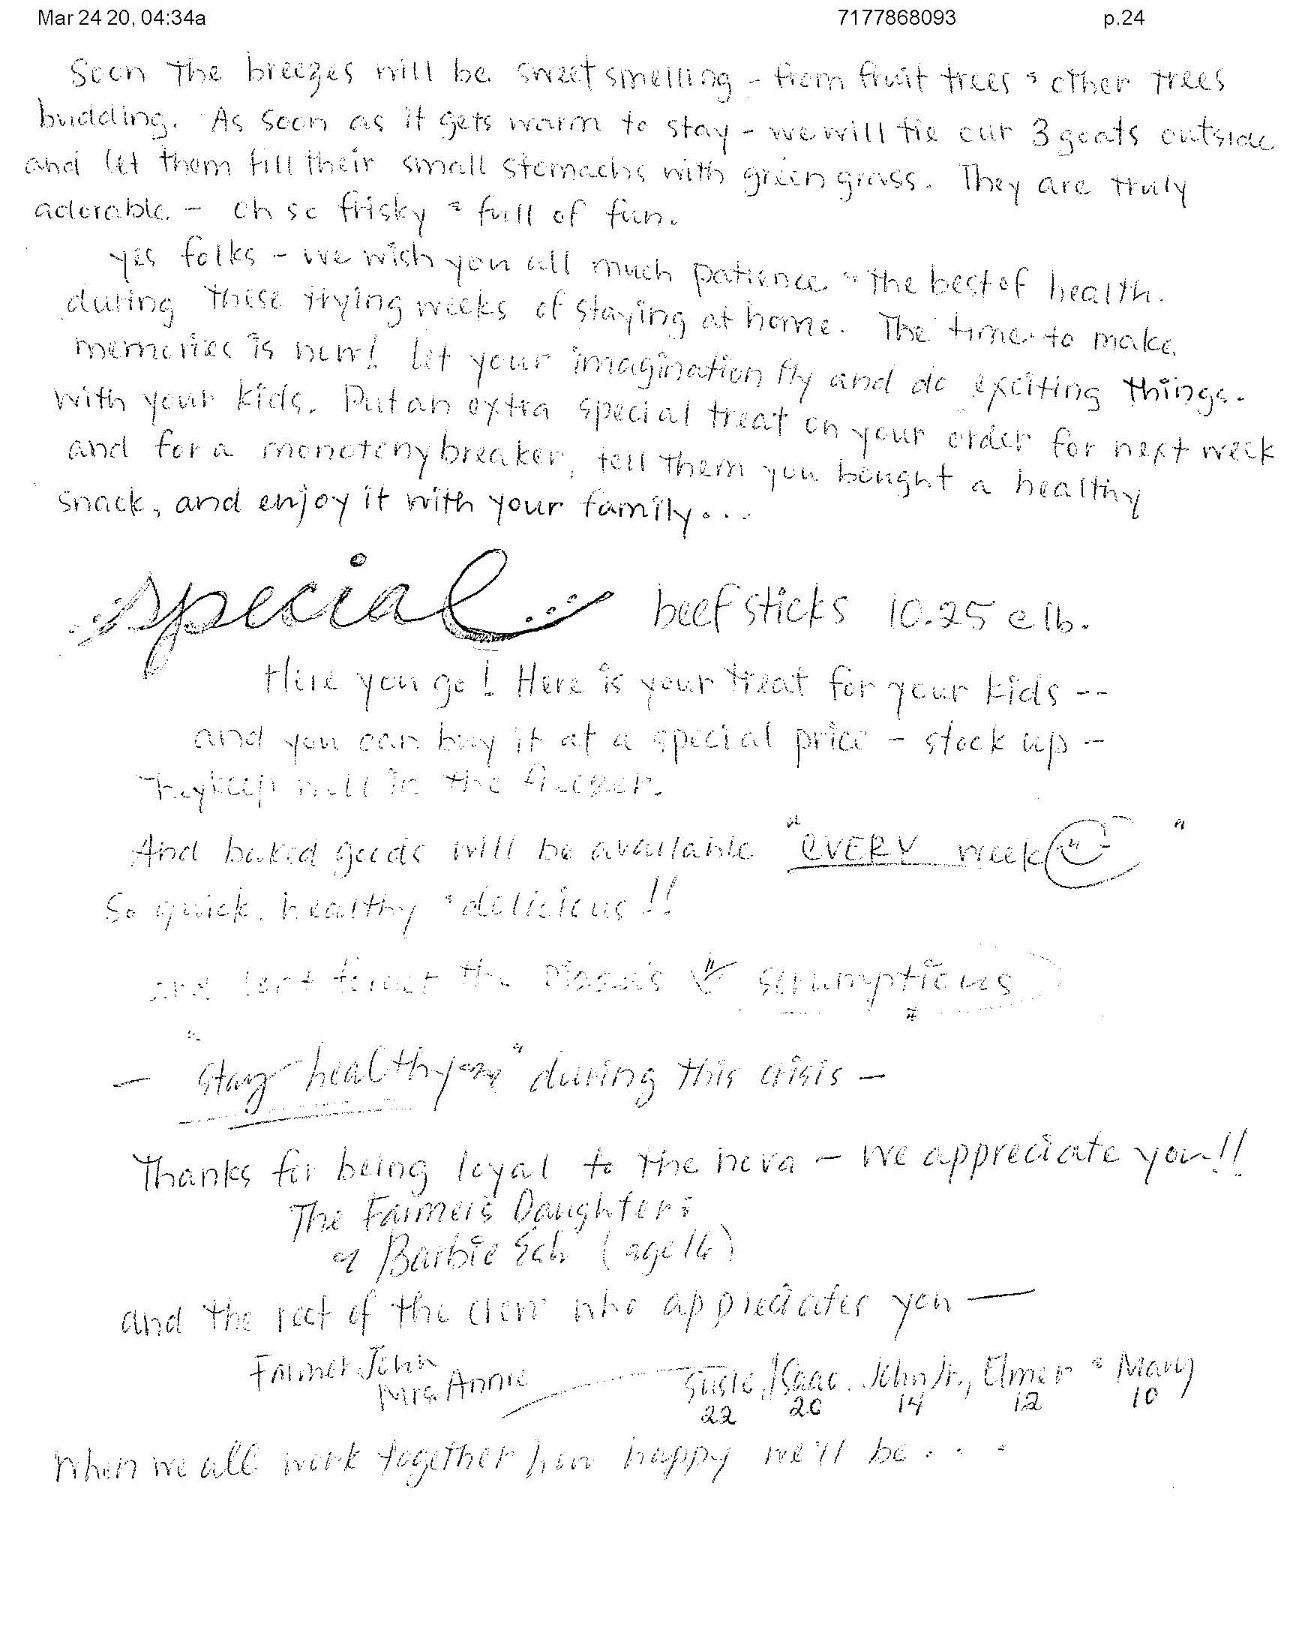 Mar 24 20, 04:34a 7177868093 p.24
Soon the breezes will be sweet smelling - from fruit trees & other trees
budding. As soon as it gets warm to stay - we will tie our 3 goats outside
and let them fill their small stomachs with green grass. They are truly
adorable - oh so frisky & full of fun.
yes folks - we wish you all much patience & the best of health.
during these trying weeks of staying at home. The time to make
memories is now! Let your imagination fly and do exciting things.
with your kids. Put an extra special treat on your order for next week
and for a monotony breaker, tell them you bought a healthy
snack, and enjoy it with your family...
special beef sticks 10.25 a lb.
Here you go! Here is your treat for your kids --
and you can buy it at a special price - stock up -
They keep well in the freezer.
And baked goods will be available "EVERY week "
So quick, healthy & delicious!!
and don't forget the scrumptious
- "stay healthy" during this crisis -
Thanks for being loyal to the nova - we appreciate you!!
The Farmer's Daughter:
Barbie Esh (age 16)
and the rest of the crew who appreciates you —
Farmer John
Mrs. Annie — Susie, Isaac, John Jr., Elmer & Mary
22 20 14 12 10
When we all work together how happy we'll be....